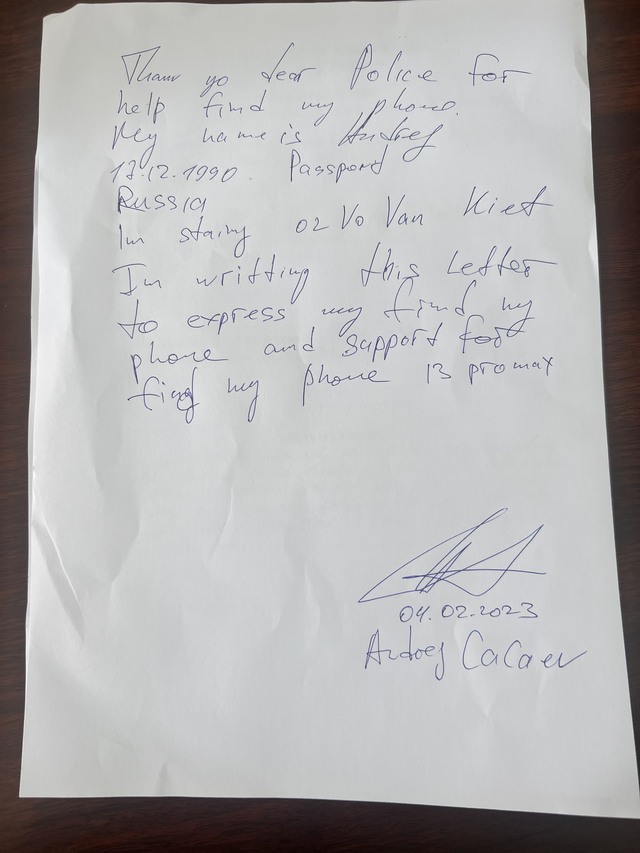 Thank yo dear Police for
help find my phone.
My name is Andrej
17.12.1990 Passport
Russia
Im stainy 02 Vo Van Kiet
Im writting this Letter
to express my find my
phone and support for
find my phone 13 promax
04.02.2023
Andrej CaCaev